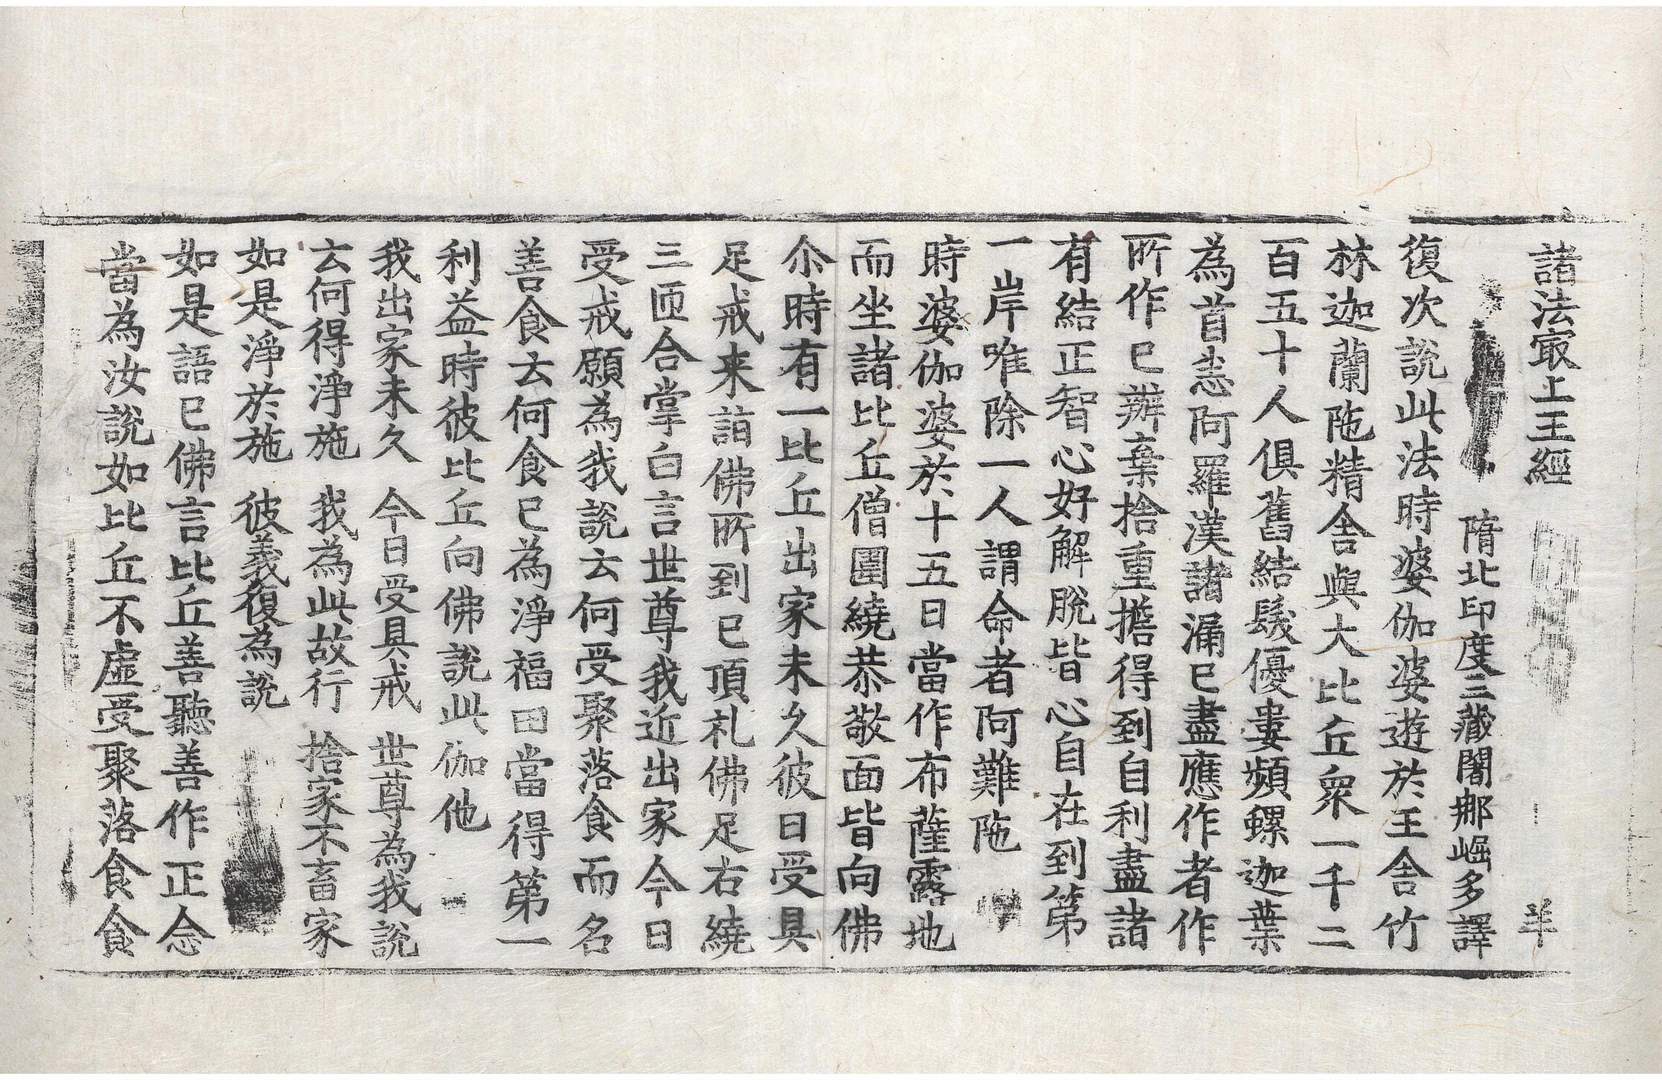 諸法冣上王經　羊
隋北印度三藏闍那崛多譯
復次說此法時婆伽婆遊於王舍竹
林迦蘭陁精舍與大比丘衆一千二
百五十人俱舊結䯻優婁頻螺迦葉
為首悉阿羅漢諸漏已盡應作者作
所作已辦棄捨重擔得到自利盡諸
有結正智心好解脫皆心自在到第
一岸唯除一人謂命者阿難陁
時婆伽婆於十五日當作布薩露地
而坐諸比丘僧圍繞恭敬面皆向佛
尒時有一比丘出家未久彼日受具
足戒来詣佛所到已頂礼佛足右繞
三匝合掌白言世尊我近出家今日
受戒願為我說云何受聚落食而名
善食云何食已為淨福田當得第一
利益時彼比丘向佛說此伽他
我出家未久　今日受具戒　世尊為我說
云何得淨施　我為此故行　捨家不畜家
如是淨於施　彼義復為說
如是語已佛言比丘善聽善作正念
當為汝說如比丘不虛受聚落食食